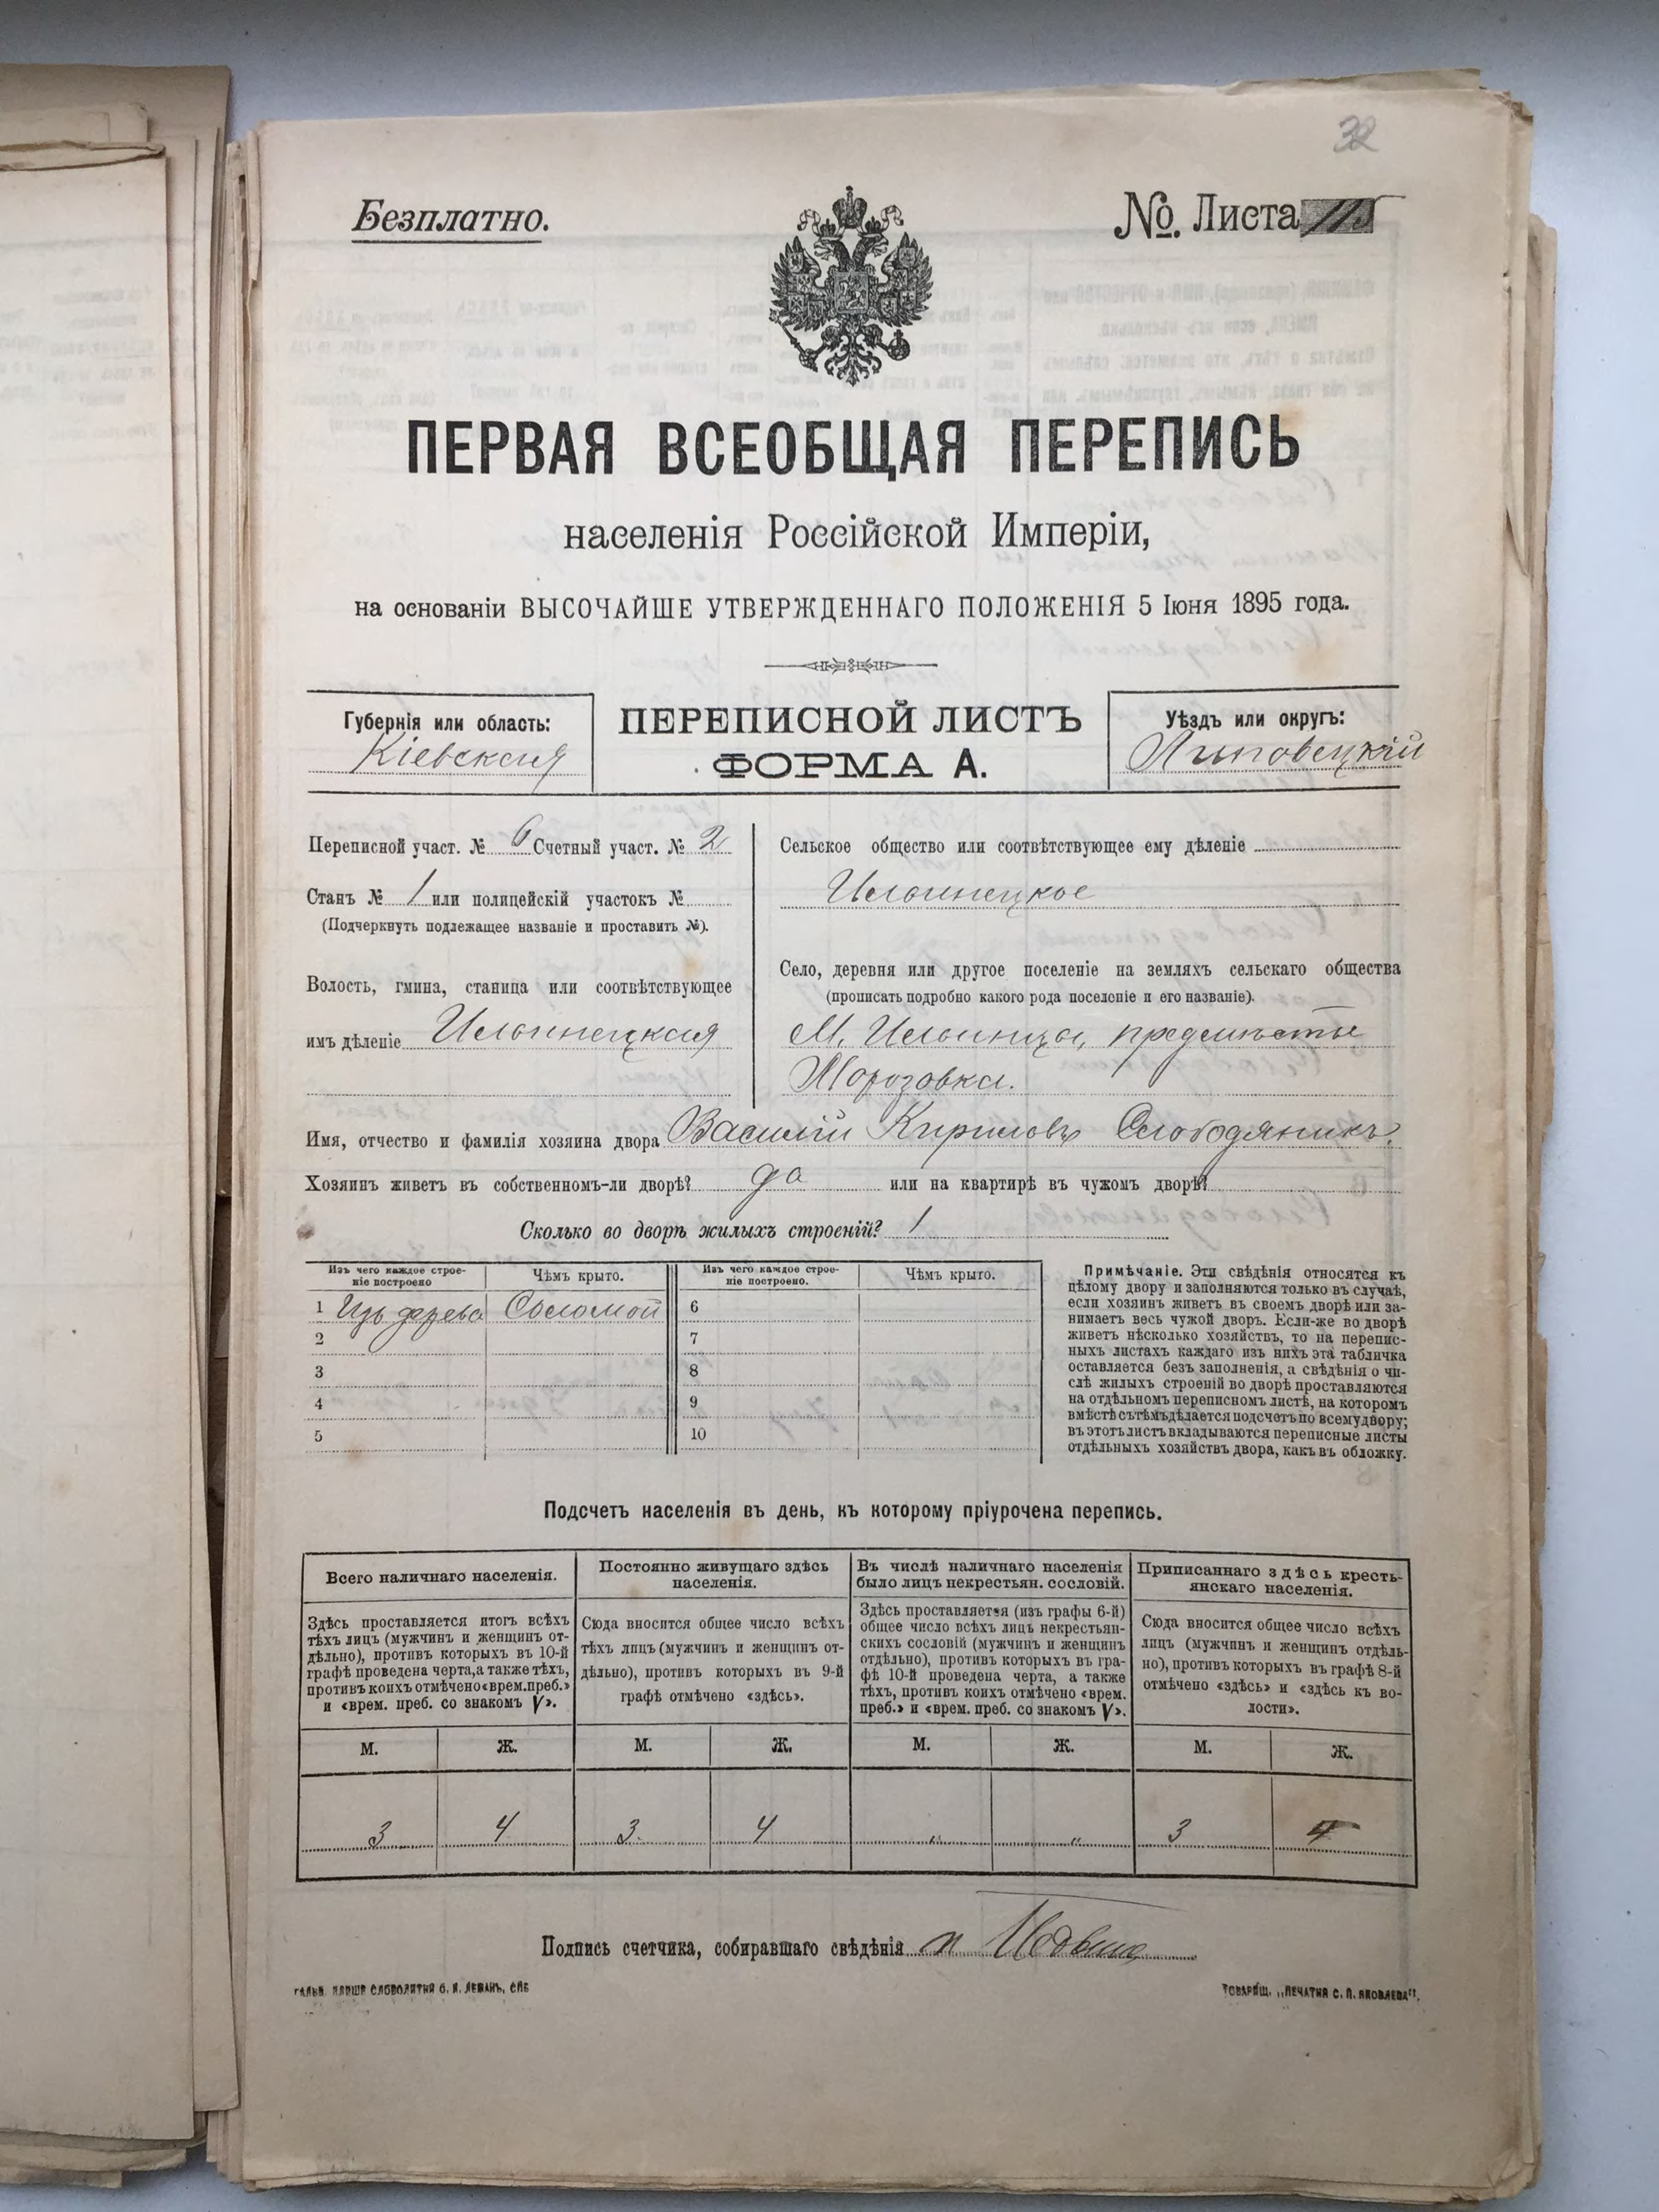 32
Безплатно.
№. Листа
ПЕРВАЯ ВСЕОБЩАЯ ПЕРЕПИСЬ
населенія Россійской Имперіи,
на основаніи ВЫСОЧАЙШЕ УТВЕРЖДЕННАГО ПОЛОЖЕНІЯ 5 Іюня 1895 года.
Губернія или область:
Кіевская
ПЕРЕПИСНОЙ ЛИСТЪ
ФОРМА А.
Уѣздъ или округъ:
Липовецкій
Переписной участ. № 6 Счетный участ. № 2
Станъ № 1 или полицейскій участокъ №
(Подчеркнуть подлежащее названіе и проставить №).
Волость, гмина, станица или соотвѣтствующее
имъ дѣленіе Ильинецкая
Сельское общество или соотвѣтствующее ему дѣленіе
Ильинецкое
Село, деревня или другое поселеніе на земляхъ сельскаго общества
(прописать подробно какого рода поселеніе и его названіе).
М. Ильинцы, предмѣстье
Морозовка.
Имя, отчество и фамилія хозяина двора Василій Кириловъ Слободяникъ.
Хозяинъ живетъ въ собственномъ-ли дворѣ? да или на квартирѣ въ чужомъ дворѣ?
Сколько во дворѣ жилыхъ строеній? 1
Изъ чего каждое строе-
ніе построено
Чѣмъ крыто.
Изъ чего каждое строе-
ніе построено.
Чѣмъ крыто.
1 Изъ дерева Соломой 6
2 7
3 8
4 9
5 10
Примѣчаніе. Эти свѣдѣнія относятся къ
цѣлому двору и заполняются только въ случаѣ,
если хозяинъ живетъ въ своемъ дворѣ или за-
нимаетъ весь чужой дворъ. Если-же во дворѣ
живетъ нѣсколько хозяйствъ, то на перепис-
ныхъ листахъ каждаго изъ нихъ эта табличка
оставляется безъ заполненія, а свѣдѣнія о чи-
слѣ жилыхъ строеній во дворѣ проставляются
на отдѣльномъ переписномъ листѣ, на которомъ
вмѣстѣ съ тѣмъ дѣлается подсчетъ по всему двору;
въ этотъ листъ вкладываются переписные листы
отдѣльныхъ хозяйствъ двора, какъ въ обложку.
Подсчетъ населенія въ день, къ которому пріурочена перепись.
Всего наличнаго населенія.
Здѣсь проставляется итогъ всѣхъ
тѣхъ лицъ (мужчинъ и женщинъ от-
дѣльно), противъ которыхъ въ 10-й
графѣ проведена черта, а также тѣхъ,
противъ коихъ отмѣчено «врем. преб.»
и «врем. преб. со знакомъ V».
Постоянно живущаго здѣсь
населенія.
Сюда вносится общее число всѣхъ
тѣхъ лицъ (мужчинъ и женщинъ от-
дѣльно), противъ которыхъ въ 9-й
графѣ отмѣчено «здѣсь».
Въ числѣ наличнаго населенія
было лицъ некрестьян. сословій.
Здѣсь проставляется (изъ графы 6-й)
общее число всѣхъ лицъ некрестьян-
скихъ сословій (мужчинъ и женщинъ
отдѣльно), противъ которыхъ въ гра-
фѣ 10-й проведена черта, а также
тѣхъ, противъ коихъ отмѣчено «врем.
преб.» и «врем. преб. со знакомъ V».
Приписаннаго здѣсь кресть-
янскаго населенія.
Сюда вносится общее число всѣхъ
лицъ (мужчинъ и женщинъ отдѣль-
но), противъ которыхъ въ графѣ 8-й
отмѣчено «здѣсь» и «здѣсь къ во-
лости».
М. Ж. М. Ж. М. Ж. М. Ж.
3 4 3 4 „ „ 3 4
Подпись счетчика, собиравшаго свѣдѣнія
ТОВАРИЩ. „ПЕЧАТНЯ С. П. ЯКОВЛЕВА".